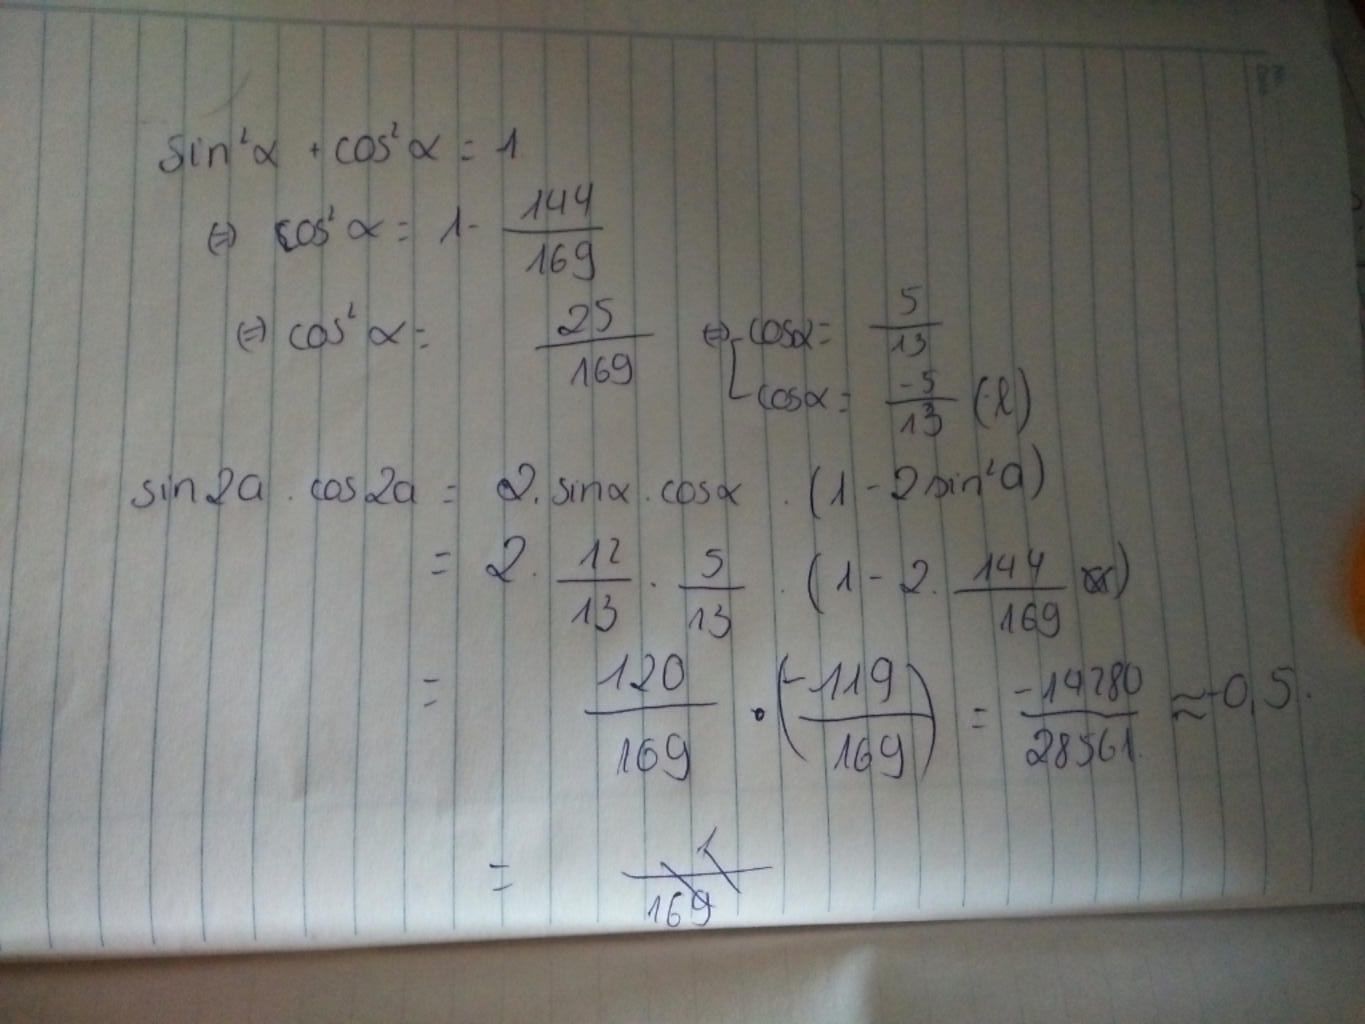 sin²α + cos²α = 1
⇔ cos²α = 1 - 144/169
⇔ cos²α = 25/169 ⇔ [ cosα = 5/13
cosα = -5/13 (l)
sin2a . cos2a = 2. sinα . cosα . (1 - 2sin²a)
= 2. 12/13 . 5/13 . (1 - 2. 144/169)
= 120/169 . (-119/169) = -14280/28561 ≈ -0,5.
= 1/169